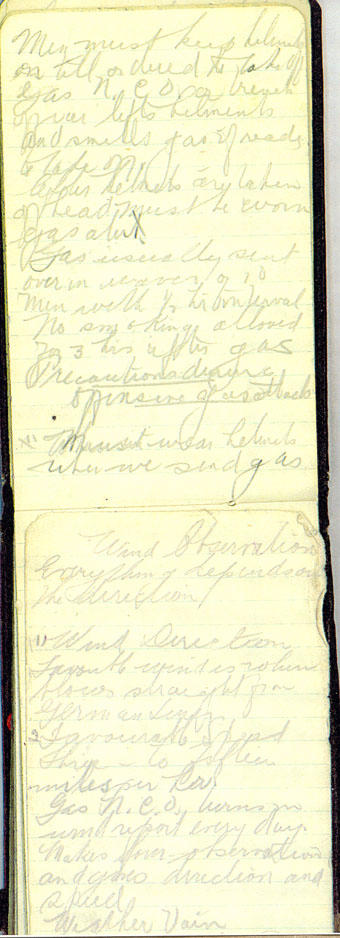 Men must keep helmets
on till ordered to take off
Gas N.C.O. or trench
officer lifts helments
and smells gas if ready
to take off
helmets are taken
off head must be worn
gas alert
Gas usually sent
over in waves of 10
Men with ½ hr interval
No smoking allowed
for 3 hrs after gas
Precautions during
offensive gas attack
1 Must wear helmets
when we send gas
Wind Observation
Everything depends on
the direction
1 Wind Direction
Favourable wind is when
blows straight from
German Lines
2 Favourable speed
to fifteen
miles per hr
Gas N.C.O. turns in
wind report every day
Makes four observations
and gives direction and
speed
Weather Vain